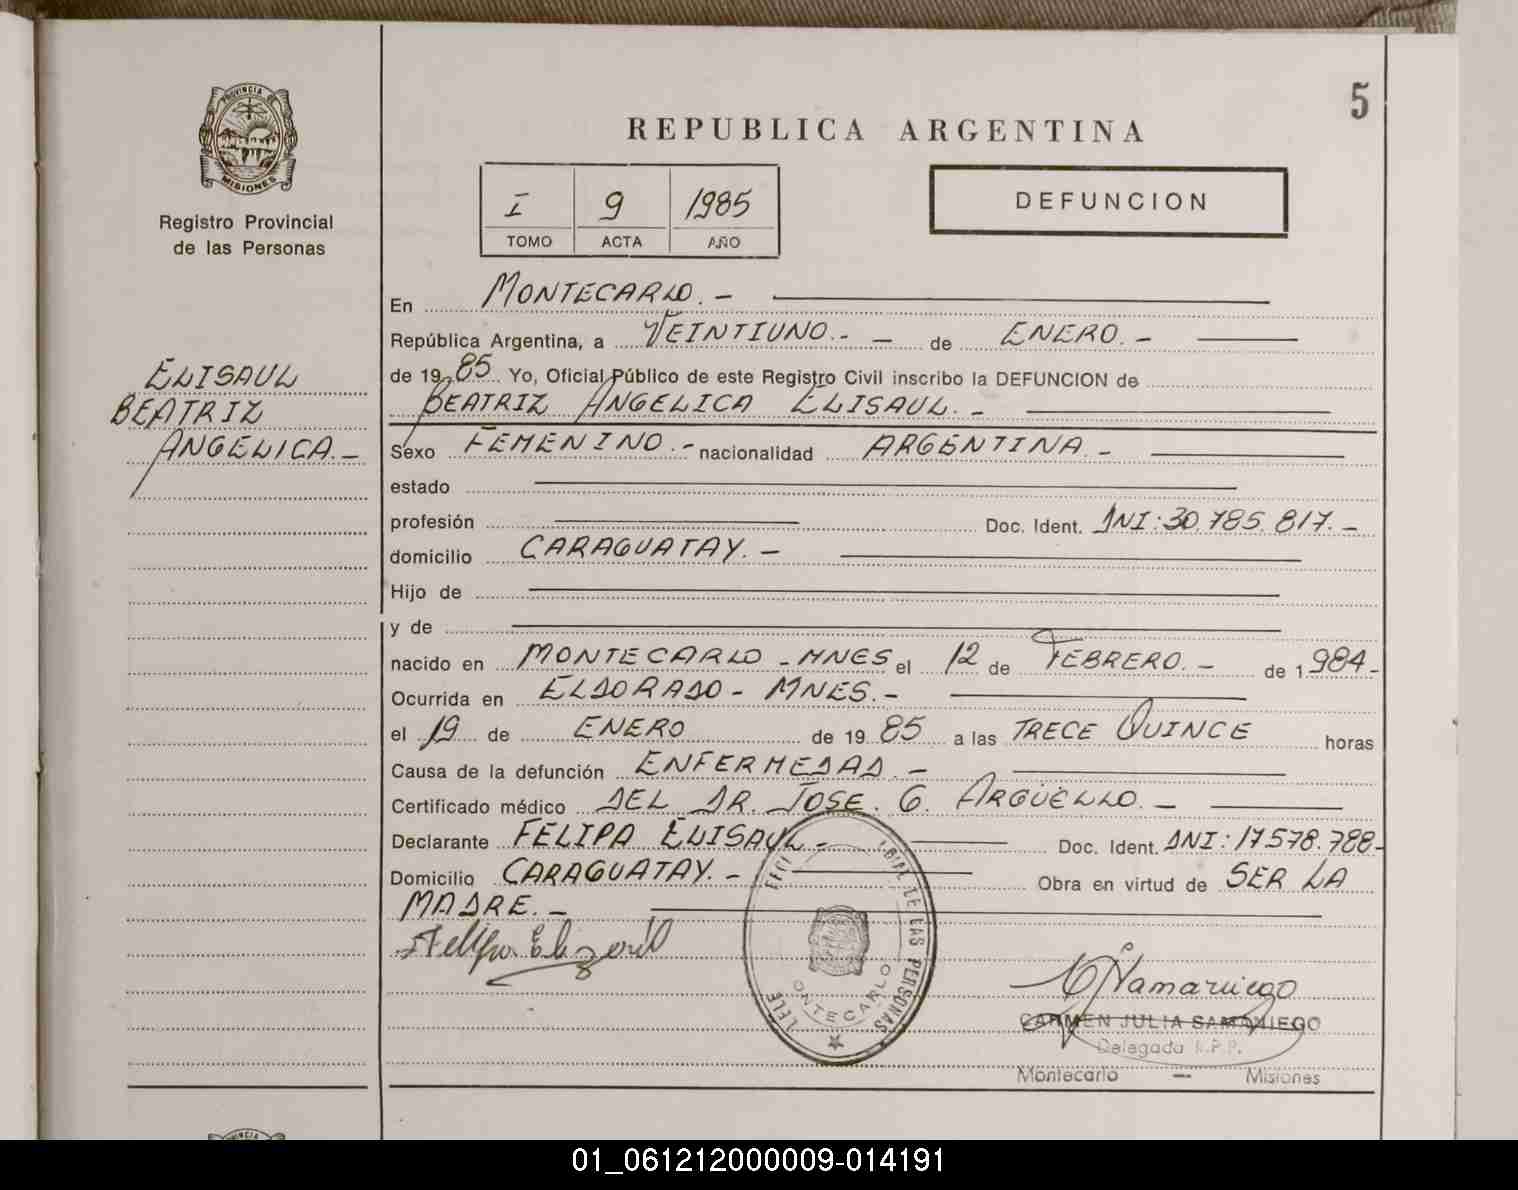 5
PROVINCIA DE
MISIONES
Registro Provincial
de las Personas
REPUBLICA ARGENTINA
I 9 1985
TOMO ACTA AÑO
DEFUNCION
ELISAUL
BEATRIZ
ANGELICA.-
En MONTECARLO.-
República Argentina, a VEINTIUNO.- - de ENERO.-
de 19 85 Yo, Oficial Público de este Registro Civil inscribo la DEFUNCION de
BEATRIZ ANGELICA ELISAUL.-
Sexo FEMENINO.- nacionalidad ARGENTINA.-
estado
profesión Doc. Ident. DNI: 30.785.817.-
domicilio CARAGUATAY.-
Hijo de
y de
nacido en MONTECARLO - MNES el 12 de FEBRERO.- de 1984-
Ocurrida en ELDORADO - MNES.-
el 19 de ENERO de 19 85 a las TRECE QUINCE horas
Causa de la defunción ENFERMEDAD.-
Certificado médico DEL DR. JOSE. G. ARGÜELLO.-
Declarante FELIPA ELISAUL.- Doc. Ident. DNI: 17.578.788-
Domicilio CARAGUATAY.- Obra en virtud de SER LA
MADRE.-
DE LAS PERSONAS
MONTECARLO
CARMEN JULIA SAMANIEGO
Delegada R.P.P.
Montecarlo - Misiones
01_061212000009-014191